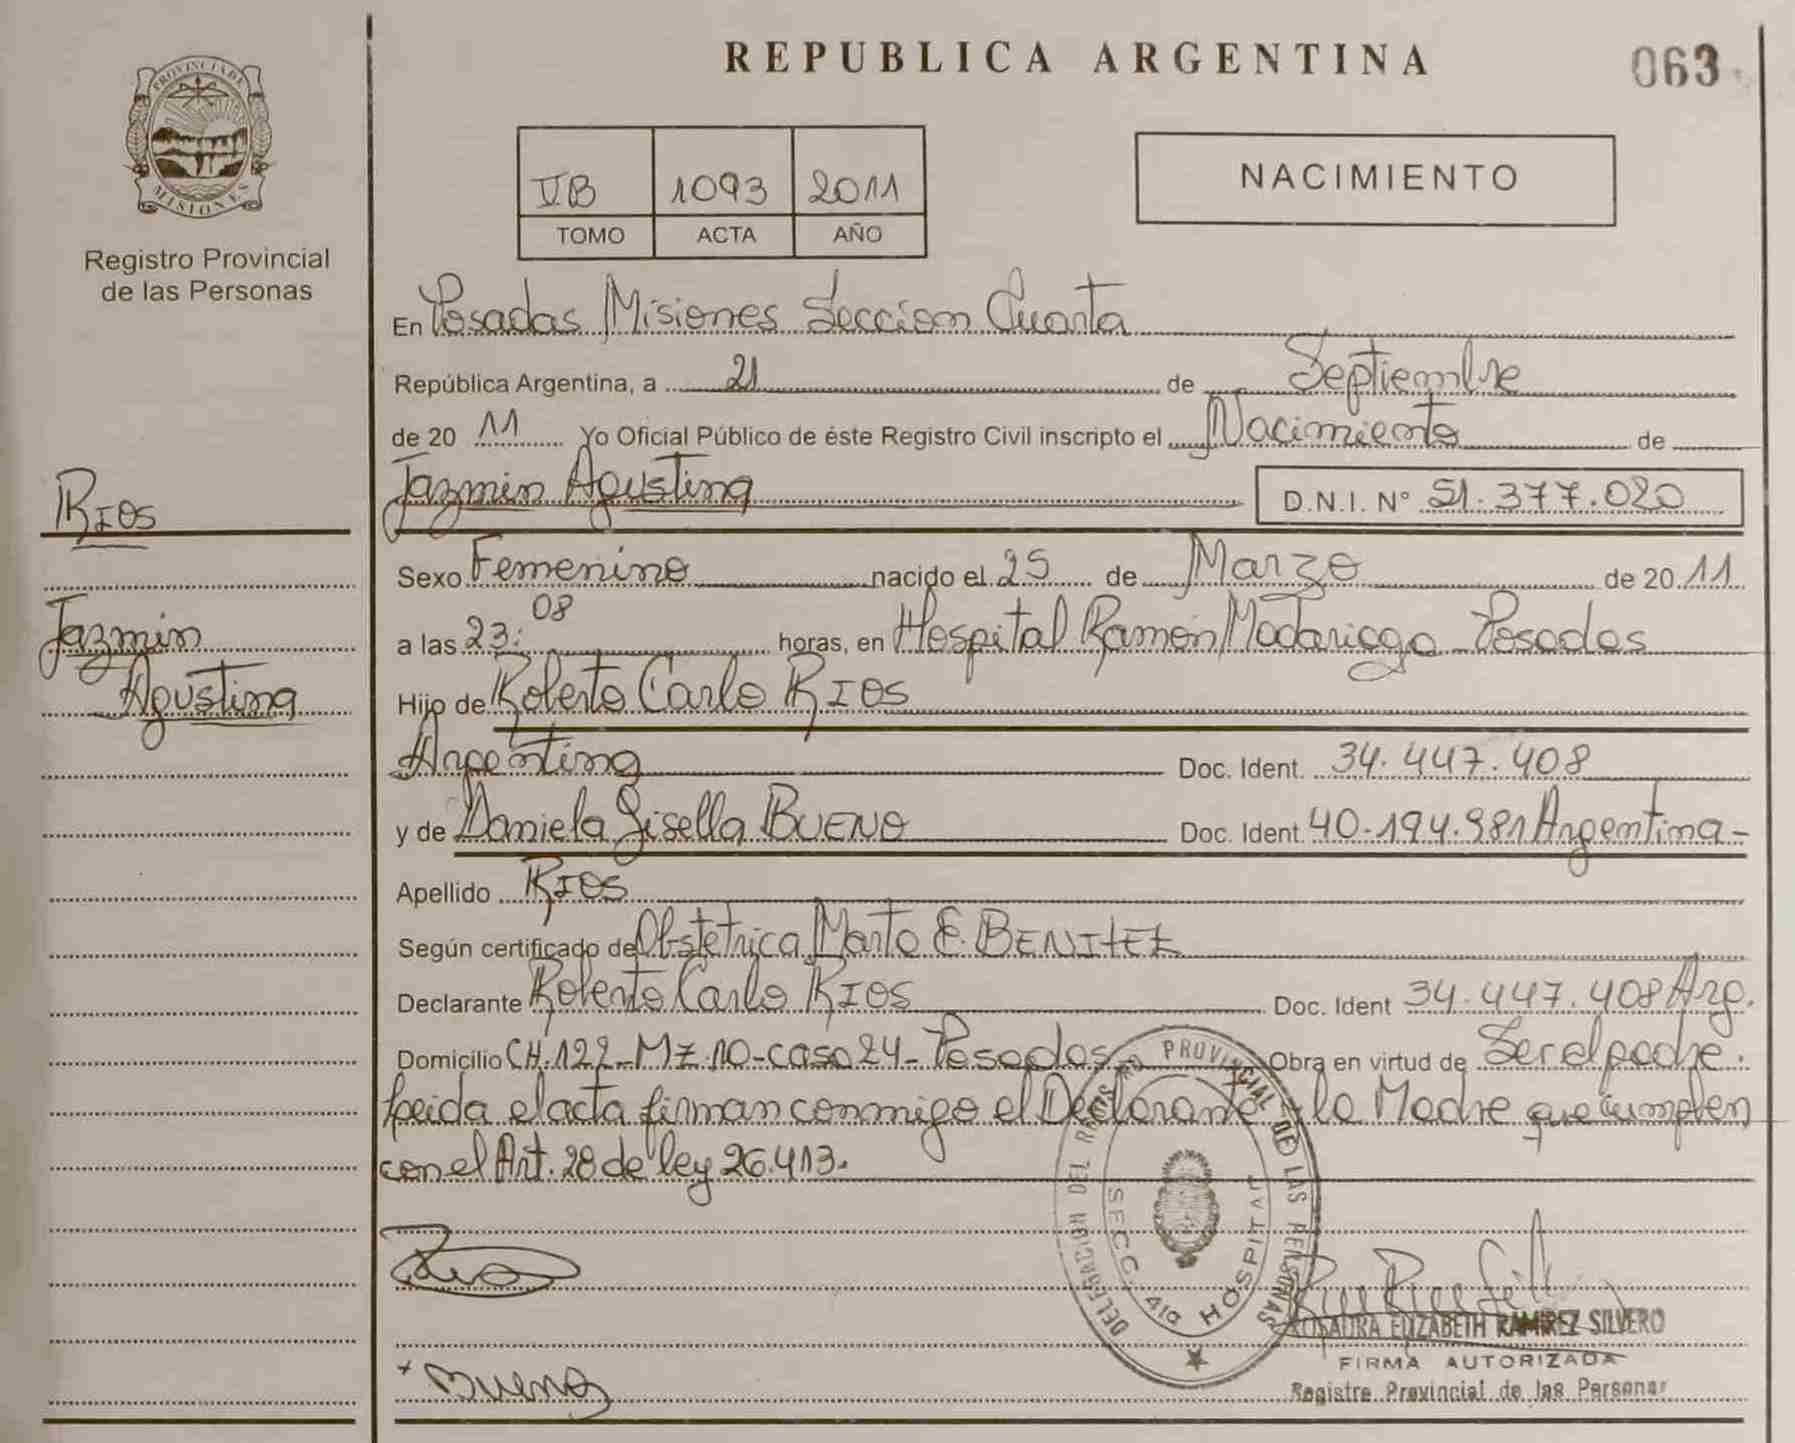 PROVINCIA DE
MISIONES
Registro Provincial
de las Personas
RIOS
Jazmin
Agustina
REPUBLICA ARGENTINA
063
VB 1093 2011
TOMO ACTA AÑO
NACIMIENTO
En Posadas Misiones Seccion Cuarta
República Argentina, a 21 de Septiembre
de 2011 Yo Oficial Público de éste Registro Civil inscripto el Nacimiento de
Jazmin Agustina D.N.I. N° 51.377.020
Sexo Femenino nacido el 25 de Marzo de 2011
a las 23:08 horas, en Hospital Ramón Madariaga - Posadas
Hijo de Roberto Carlo RIOS
Argentino Doc. Ident. 34.447.408
y de Daniela Gisella BUENO Doc. Ident. 40.194.981 Argentina-
Apellido RIOS
Según certificado de Obstetrica Marta E. BENITEZ
Declarante Roberto Carlo RIOS Doc. Ident 34.447.408 Arg.
Domicilio CH.122-Mz.10-casa 24-Posadas Obra en virtud de Ser el padre.
Leida el acta firman conmigo el Declarante y la Madre que cumplen
con el Art. 28 de ley 26.413.
DELEGACION DEL PROVINCIAL DE LAS PERSONAS
SECC. 4ta HOSPITAL
Bueno
ROSAURA ELIZABETH RAMIREZ SILVERO
FIRMA AUTORIZADA
Registro Provincial de las Personas